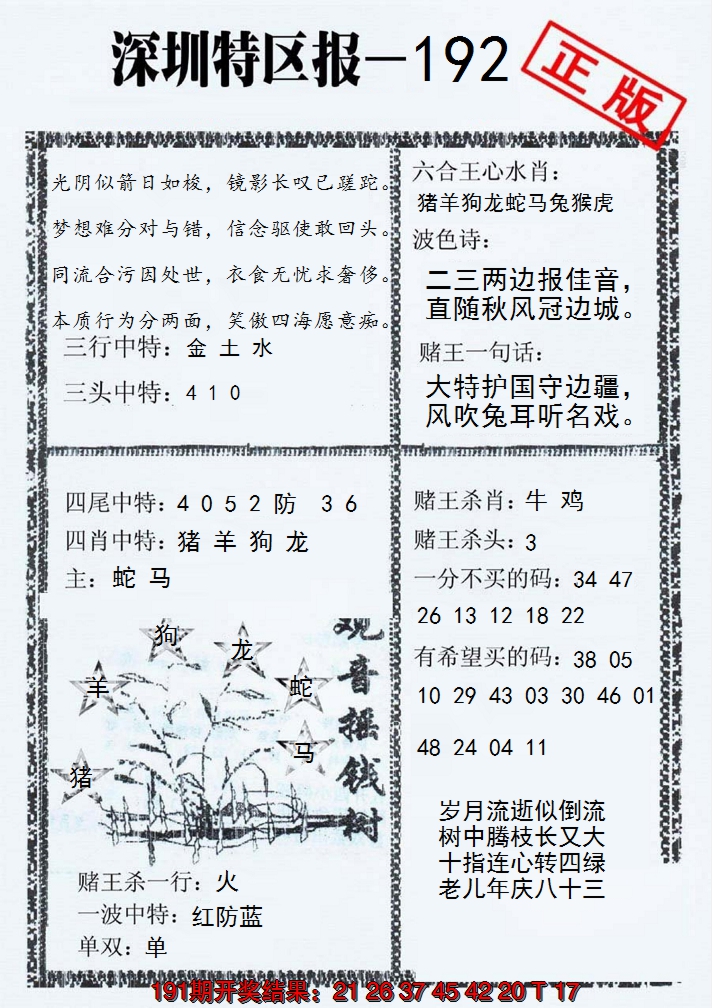 深圳特区报—192
正版
光阴似箭日如梭，镜影长叹已蹉跎。
梦想难分对与错，信念驱使敢回头。
同流合污因处世，衣食无忧求奢侈。
本质行为分两面，笑傲四海愿意痴。
三行中特：金 土 水
三头中特：4 1 0
六合王心水肖：
猪羊狗龙蛇马兔猴虎
波色诗：
二三两边报佳音，
直随秋风冠边城。
赌王一句话：
大特护国守边疆，
风吹兔耳听名戏。
四尾中特：4 0 5 2 防 3 6
四肖中特：猪 羊 狗 龙
主：蛇 马
狗
龙
羊
蛇
马
猪
观音摇钱树
赌王杀一行：火
一波中特：红防蓝
单双：单
赌王杀肖：牛 鸡
赌王杀头：3
一分不买的码：34 47
26 13 12 18 22
有希望买的码：38 05
10 29 43 03 30 46 01
48 24 04 11
岁月流逝似倒流
树中腾枝长又大
十指连心转四绿
老儿年庆八十三
191期开奖结果：21 26 37 45 42 20 T 17